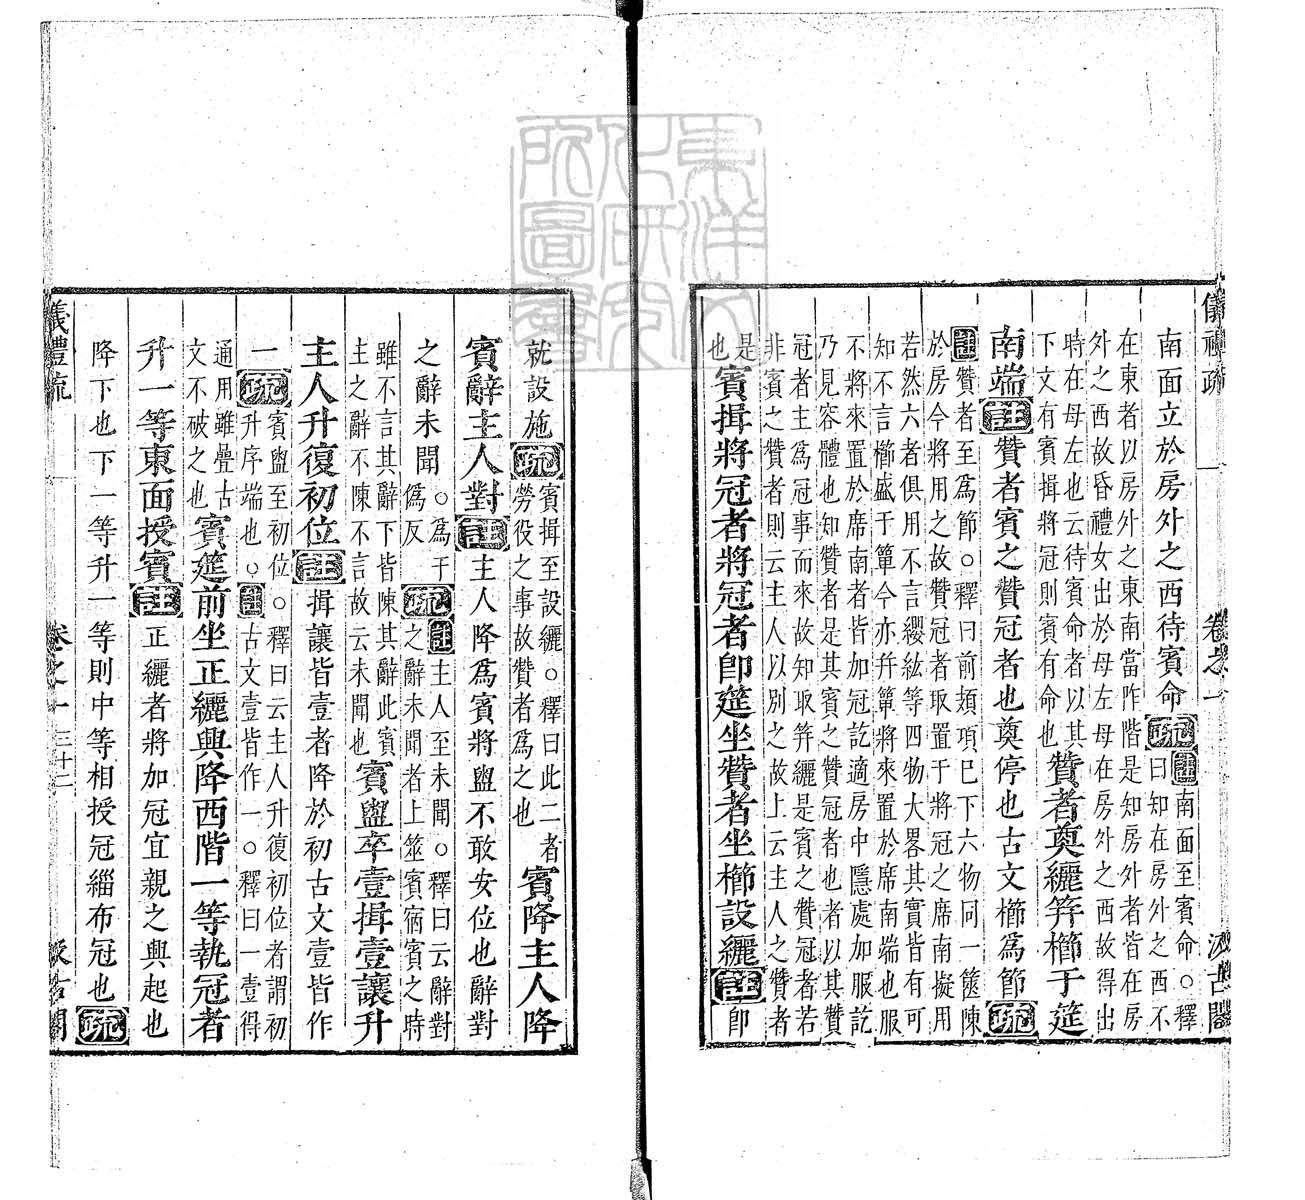 儀禮疏 卷之一 汲古閣
南面立於房外之西待賓命疏註南面至賓命○釋
曰知在房外之西不
在東者以房外之東南當阼階是知房外者皆在房
外之西故昏禮女出於母左母在房外之西故得出
時在母左也云待賓命者以其
下文有賓揖將冠則賓有命也
贊者奠纚笄櫛于筵
南端註贊者賓之贊冠者也奠停也古文櫛為節疏
註贊者至為節○釋曰前頍項已下六物同一篋陳
於房今將用之故贊冠者取置于將冠之席南擬用
若然六者俱用不言纓紘等四物大畧其實皆有可
知不言櫛盛于簞今亦幷簞將來置於席南端也服
不將來置於席南者皆加冠訖適房中隱處加服訖
乃見容體也知贊者是其賓之贊冠者也者以其贊
冠者主為冠事而來故知取笄纚是賓之贊冠者若
非賓之贊者則云主人以別之故上云主人之贊者
是
也
賓揖將冠者將冠者卽筵坐贊者坐櫛設纚註卽
就設施疏賓揖至設纚○釋曰此二者
勞役之事故贊者為之也
賓降主人降
賓辭主人對註主人降為賓將盥不敢安位也辭對
之辭未聞○為于
偽反
疏註主人至未聞○釋曰云辭對
之辭未聞者上筮賓宿賓之時
雖不言其辭下皆陳其辭此賓
主之辭不陳不言故云未聞也
賓盥卒壹揖壹讓升
主人升復初位註揖讓皆壹者降於初古文壹皆作
一疏賓盥至初位○釋曰云主人升復初位者謂初
升序端也○註古文壹皆作一○釋曰一壹得
通用雖疊古
文不破之也
賓筵前坐正纚興降西階一等執冠者
升一等東面授賓註正纚者將加冠宜親之興起也
降下也下一等升一等則中等相授冠緇布冠也疏
儀禮疏 卷之一 三十二 汲古閣